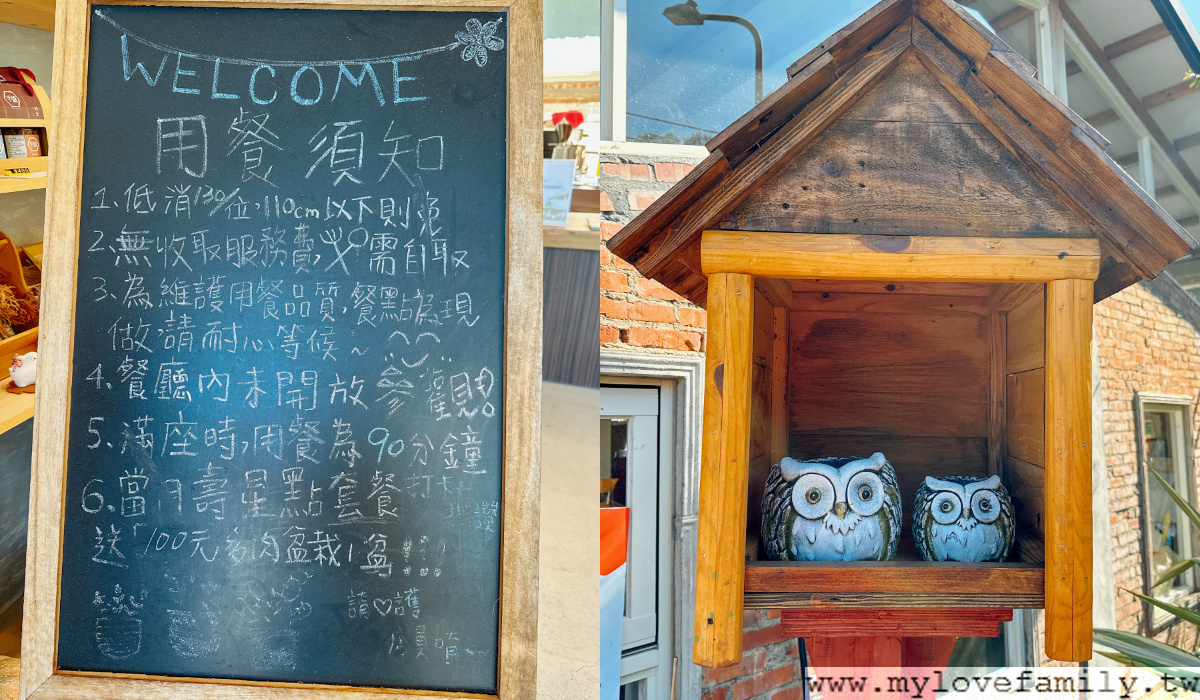 WELCOME
用餐須知
1、低消130/位,110cm以下則免
2、無收取服務費,必需自取
3、為維護用餐品質,餐點為現
做請耐心等候~
4、餐廳內未開放參觀!
5、滿座時,用餐為90分鐘
6、當月壽星點套餐打卡
送「100元多肉盆栽1盆!
請♡護
www.mylovefamily.tw